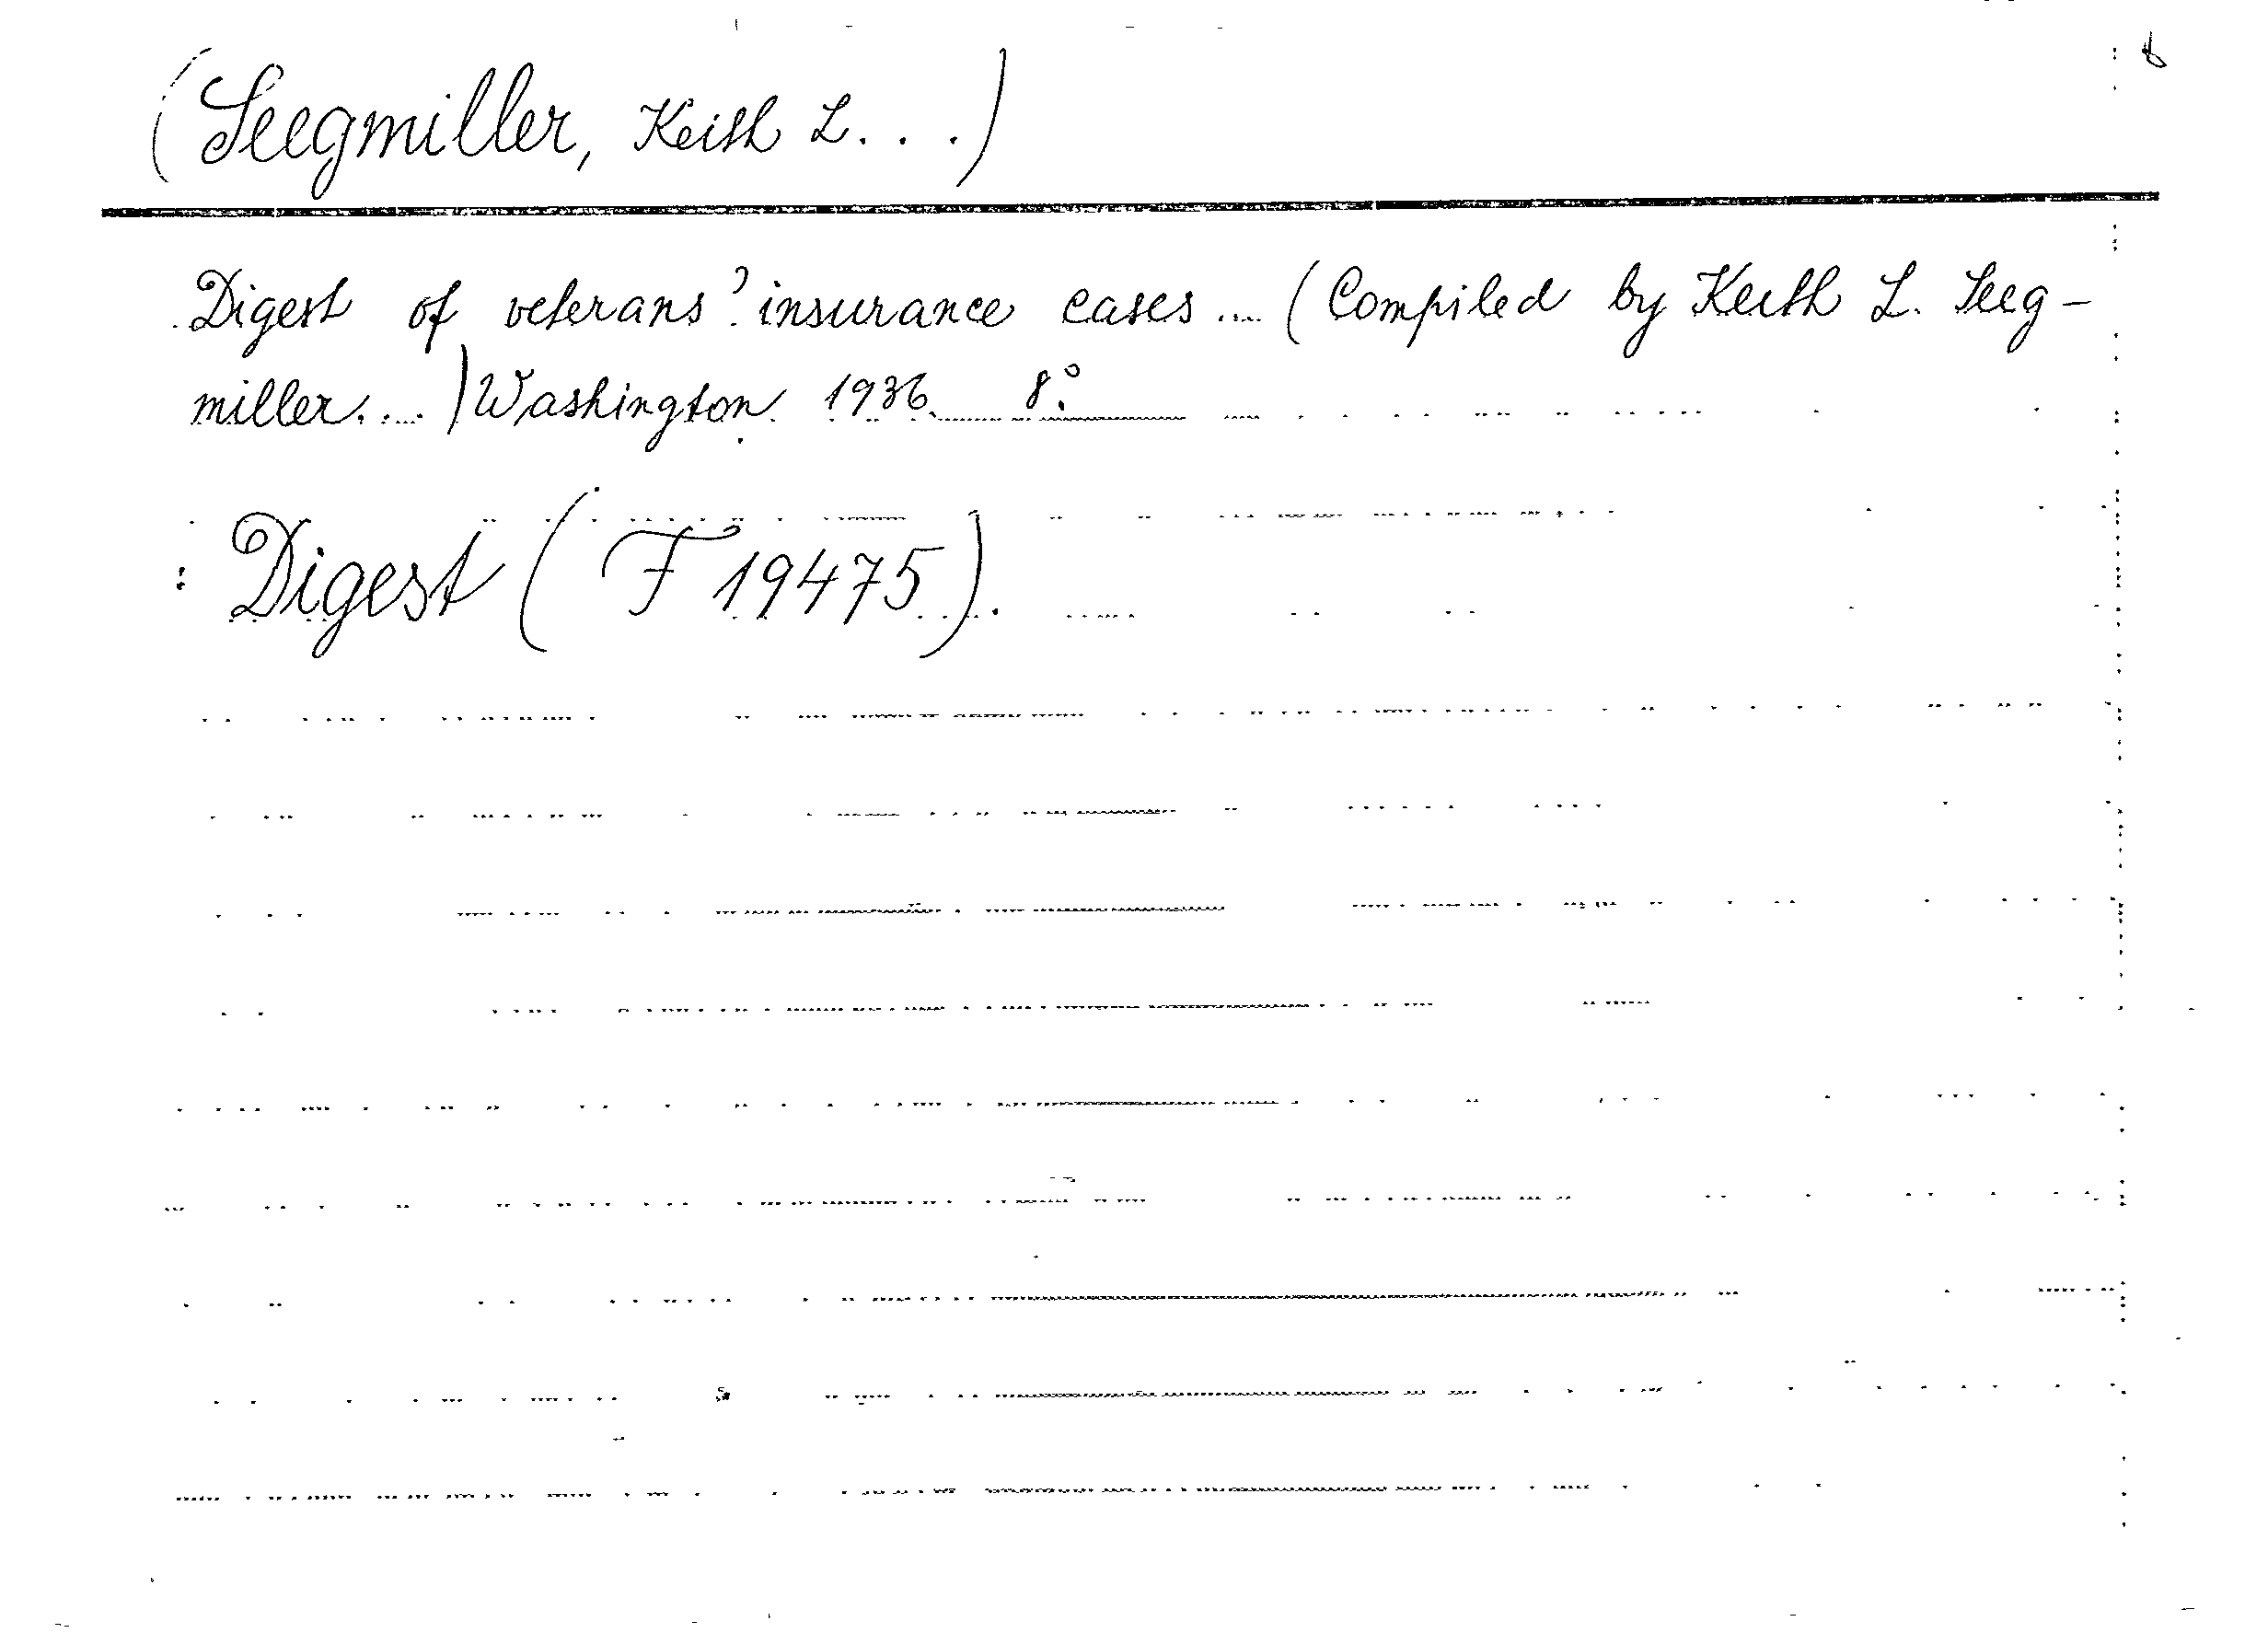 (Seegmiller, Keith L...)
Digest of veterans' insurance cases ... (Compiled by Keith L. Seeg-
miller....) Washington 1936. 8°.
: Digest (F 19475).